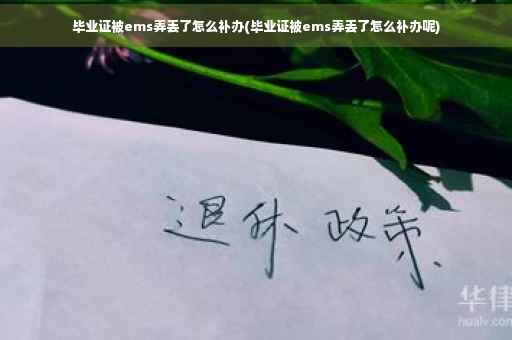 毕业证被ems弄丢了怎么补办(毕业证被ems弄丢了怎么补办呢)
退休 政策
华律
hualv.com